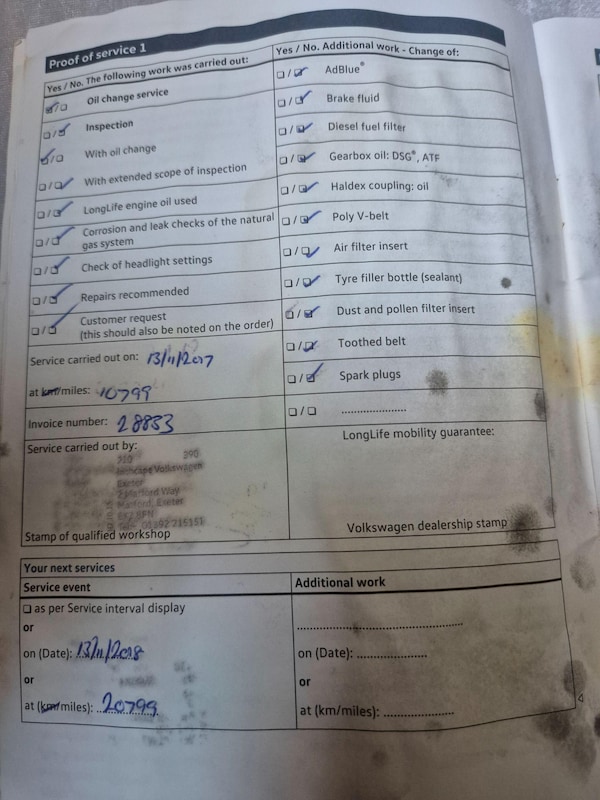 Proof of service 1
Yes / No. The following work was carried out:
☑/☐ Oil change service
☐/☑ Inspection
☑/☐ With oil change
☐/☑ With extended scope of inspection
☐/☑ LongLife engine oil used
☐/☑ Corrosion and leak checks of the natural
gas system
☐/☑ Check of headlight settings
☐/☑ Repairs recommended
☐/☑ Customer request
(this should also be noted on the order)
Service carried out on: 13/11/2017
at km/miles: 10799
Invoice number: 28833
Service carried out by:
Volkswagen
Exeter
Way
Exeter
01392 215151
Stamp of qualified workshop
Yes / No. Additional work - Change of:
☐/☑ AdBlue®
☐/☑ Brake fluid
☐/☑ Diesel fuel filter
☐/☑ Gearbox oil: DSG®, ATF
☐/☑ Haldex coupling: oil
☐/☑ Poly V-belt
☐/☑ Air filter insert
☐/☑ Tyre filler bottle (sealant)
☐/☑ Dust and pollen filter insert
☐/☑ Toothed belt
☐/☑ Spark plugs
☐/☐ .....................
LongLife mobility guarantee:
Volkswagen dealership stamp
Your next services
Service event
☐ as per Service interval display
or
on (Date): 13/11/2018
or
at (km/miles): 20799
Additional work
.....................
on (Date): .....................
or
at (km/miles): .....................
4